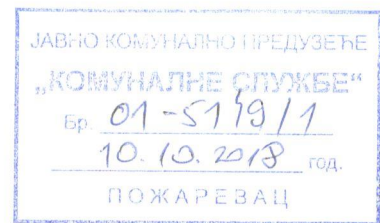 ЈАВНО КОМУНАЛНО ПРЕДУЗЕЋЕ
„КОМУНАЛНЕ СЛУЖБЕ“
Бр. 01-5149/1
10.10.2018 год.
ПОЖАРЕВАЦ